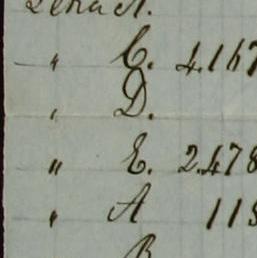 " C. 4.167
" D.
" E. 2.478
" A 118
B